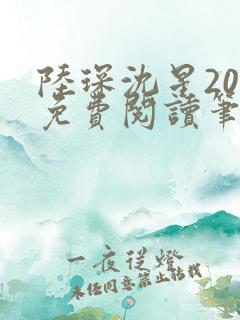 陸琛沈星20
免費閱讀筆
一夜從燈
未任同意禁止轉載